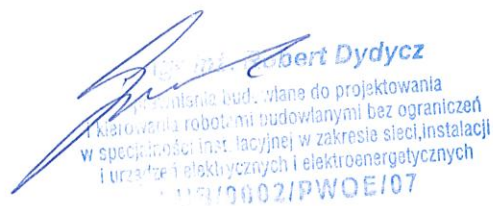 mgr inż. Robert Dydycz
budowlane do projektowania
i kierowania robotami budowlanymi bez ograniczeń
w specjalności instalacyjnej w zakresie sieci,instalacji
i urządzeń elektrycznych i elektroenergetycznych
/0002/PWOE/07